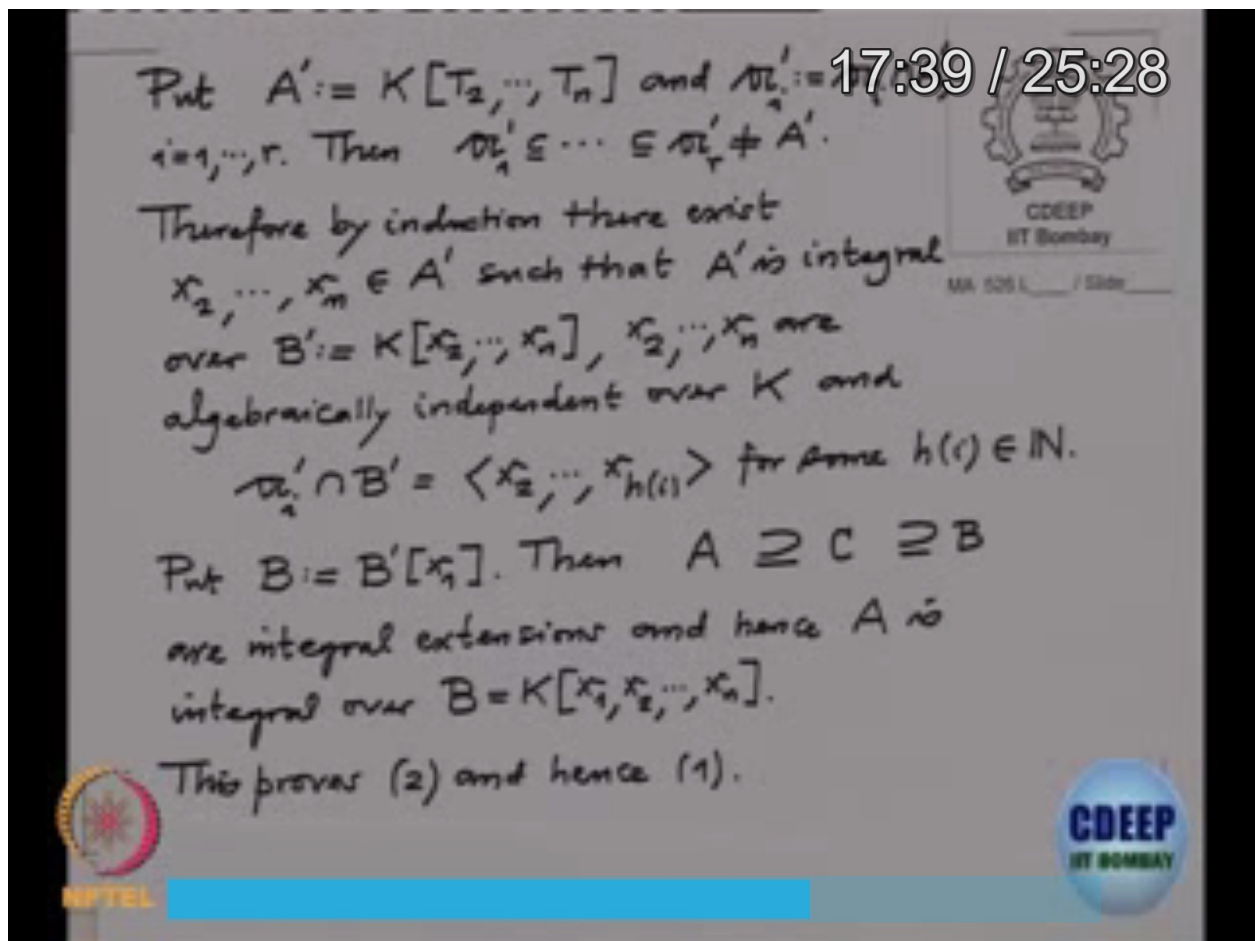 Put A' := K[T₂, ..., Tₙ] and 𝔞ᵢ' :=
17:39 / 25:28
i=1, ..., r. Then 𝔞₁' ⊆ ... ⊆ 𝔞ᵣ' ≠ A'.
Therefore by induction there exist
x₂, ..., xₙ ∈ A' such that A' is integral
over B' := K[x₂, ..., xₙ], x₂, ..., xₙ are
algebraically independent over K and
𝔞ᵢ' ∩ B' = ⟨x₂, ..., x_h(i)⟩ for some h(i) ∈ ℕ.
Put B := B'[x₁]. Then A ⊇ C ⊇ B
are integral extensions and hence A is
integral over B = K[x₁, x₂, ..., xₙ].
This proves (2) and hence (1).
CDEEP
IIT Bombay
MA 526 L___ / Slide___
NPTEL
CDEEP
IIT BOMBAY